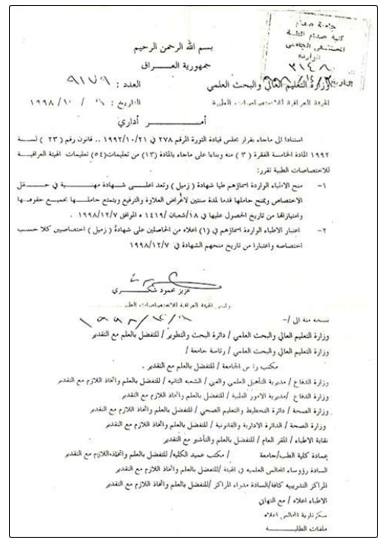 جامعة صدام
كلية صدام الطبية
المستشفى التعليمي
الواردة
بسم الله الرحمن الرحيم
جمهورية العراق
وزارة التعليم العالي والبحث العلمي
العدد :
الهيئة العراقية للاختصاصات الطبية
التاريخ : / ١٠ / ١٩٩٨
أمر أداري
استنادا الى ماجاء بقرار مجلس قيادة الثورة المرقم ٢٧٨ في ١٩٩٢/١٠/٢١ .. قانون رقم ( ٢٣ ) لسنة
١٩٩٢ المادة الخامسة الفقرة ( ٣ ) منه وبناءا على ماجاء بالمادة (١٣) من تعليمات(٥٤) تعليمات الهيئة العراقية
للاختصاصات الطبية تقرر
١- منح الاطباء الواردة اسماؤهم طيا شهادة ( زميل ) وتعد اعلى شهادة مهنية في حقل
الاختصاص ويمنح حاملها قدما لمدة سنتين لاغراض العلاوة والترفيع ويتمتع حاملها بجميع حقوقها
وامتيازاتها من تاريخ الحصول عليها في ١٨/شعبان /١٤١٩ الموافق ١٩٩٨/١٢/٧ .
٢- اعتبار الاطباء الواردة اسماؤهم في (١) اعلاه من الحاصلين على شهادة ( زميل ) اختصاصيين كلا حسب
اختصاصه واعتبارا من تاريخ منحهم الشهادة في ١٩٩٨/١٢/٧
عزيز محمود شكري
رئيس الهيئة العراقية للاختصاصات الطبية
نسخة منه الى /-
وزارة التعليم العالي والبحث العلمي / دائرة البحث والتطوير / للتفضل بالعلم مع التقدير
وزارة التعليم العالي والبحث العلمي / رئاسة جامعة /
مكتب رئيس الجامعة / للتفضل بالعلم مع التقدير .
وزارة الدفاع / مديرية التأهيل العلمي والفني / الشعبة الثانية / للتفضل بالعلم واتخاذ اللازم مع التقدير
وزارة الدفاع / مديرية الامور الطبية / للتفضل بالعلم واتخاذ اللازم مع التقدير
وزارة الصحة / دائرة التخطيط والتعليم الصحي / للتفضل بالعلم واتخاذ اللازم مع التقدير
وزارة الصحة / الدائرة الادارية والقانونية / للتفضل بالعلم واتخاذ اللازم مع التقدير
نقابة الاطباء / المقر العام / للتفضل بالعلم والتأشير مع التقدير
عمادة كلية الطب/جامعة / مكتب عميد الكلية/ للتفضل بالعلم واتخاذ اللازم مع التقدير
السادة رؤوساء المجالس العلمية في الهيئة /للتفضل بالعلم واتخاذ اللازم مع التقدير
المراكز التدريبية كافة/السادة مدراء المراكز /للتفضل بالعلم واتخاذ اللازم مع التقدير
الاطباء اعلاه / مع التهاني
سكرتارية المجالس اعلاه
ملفات الطلبة